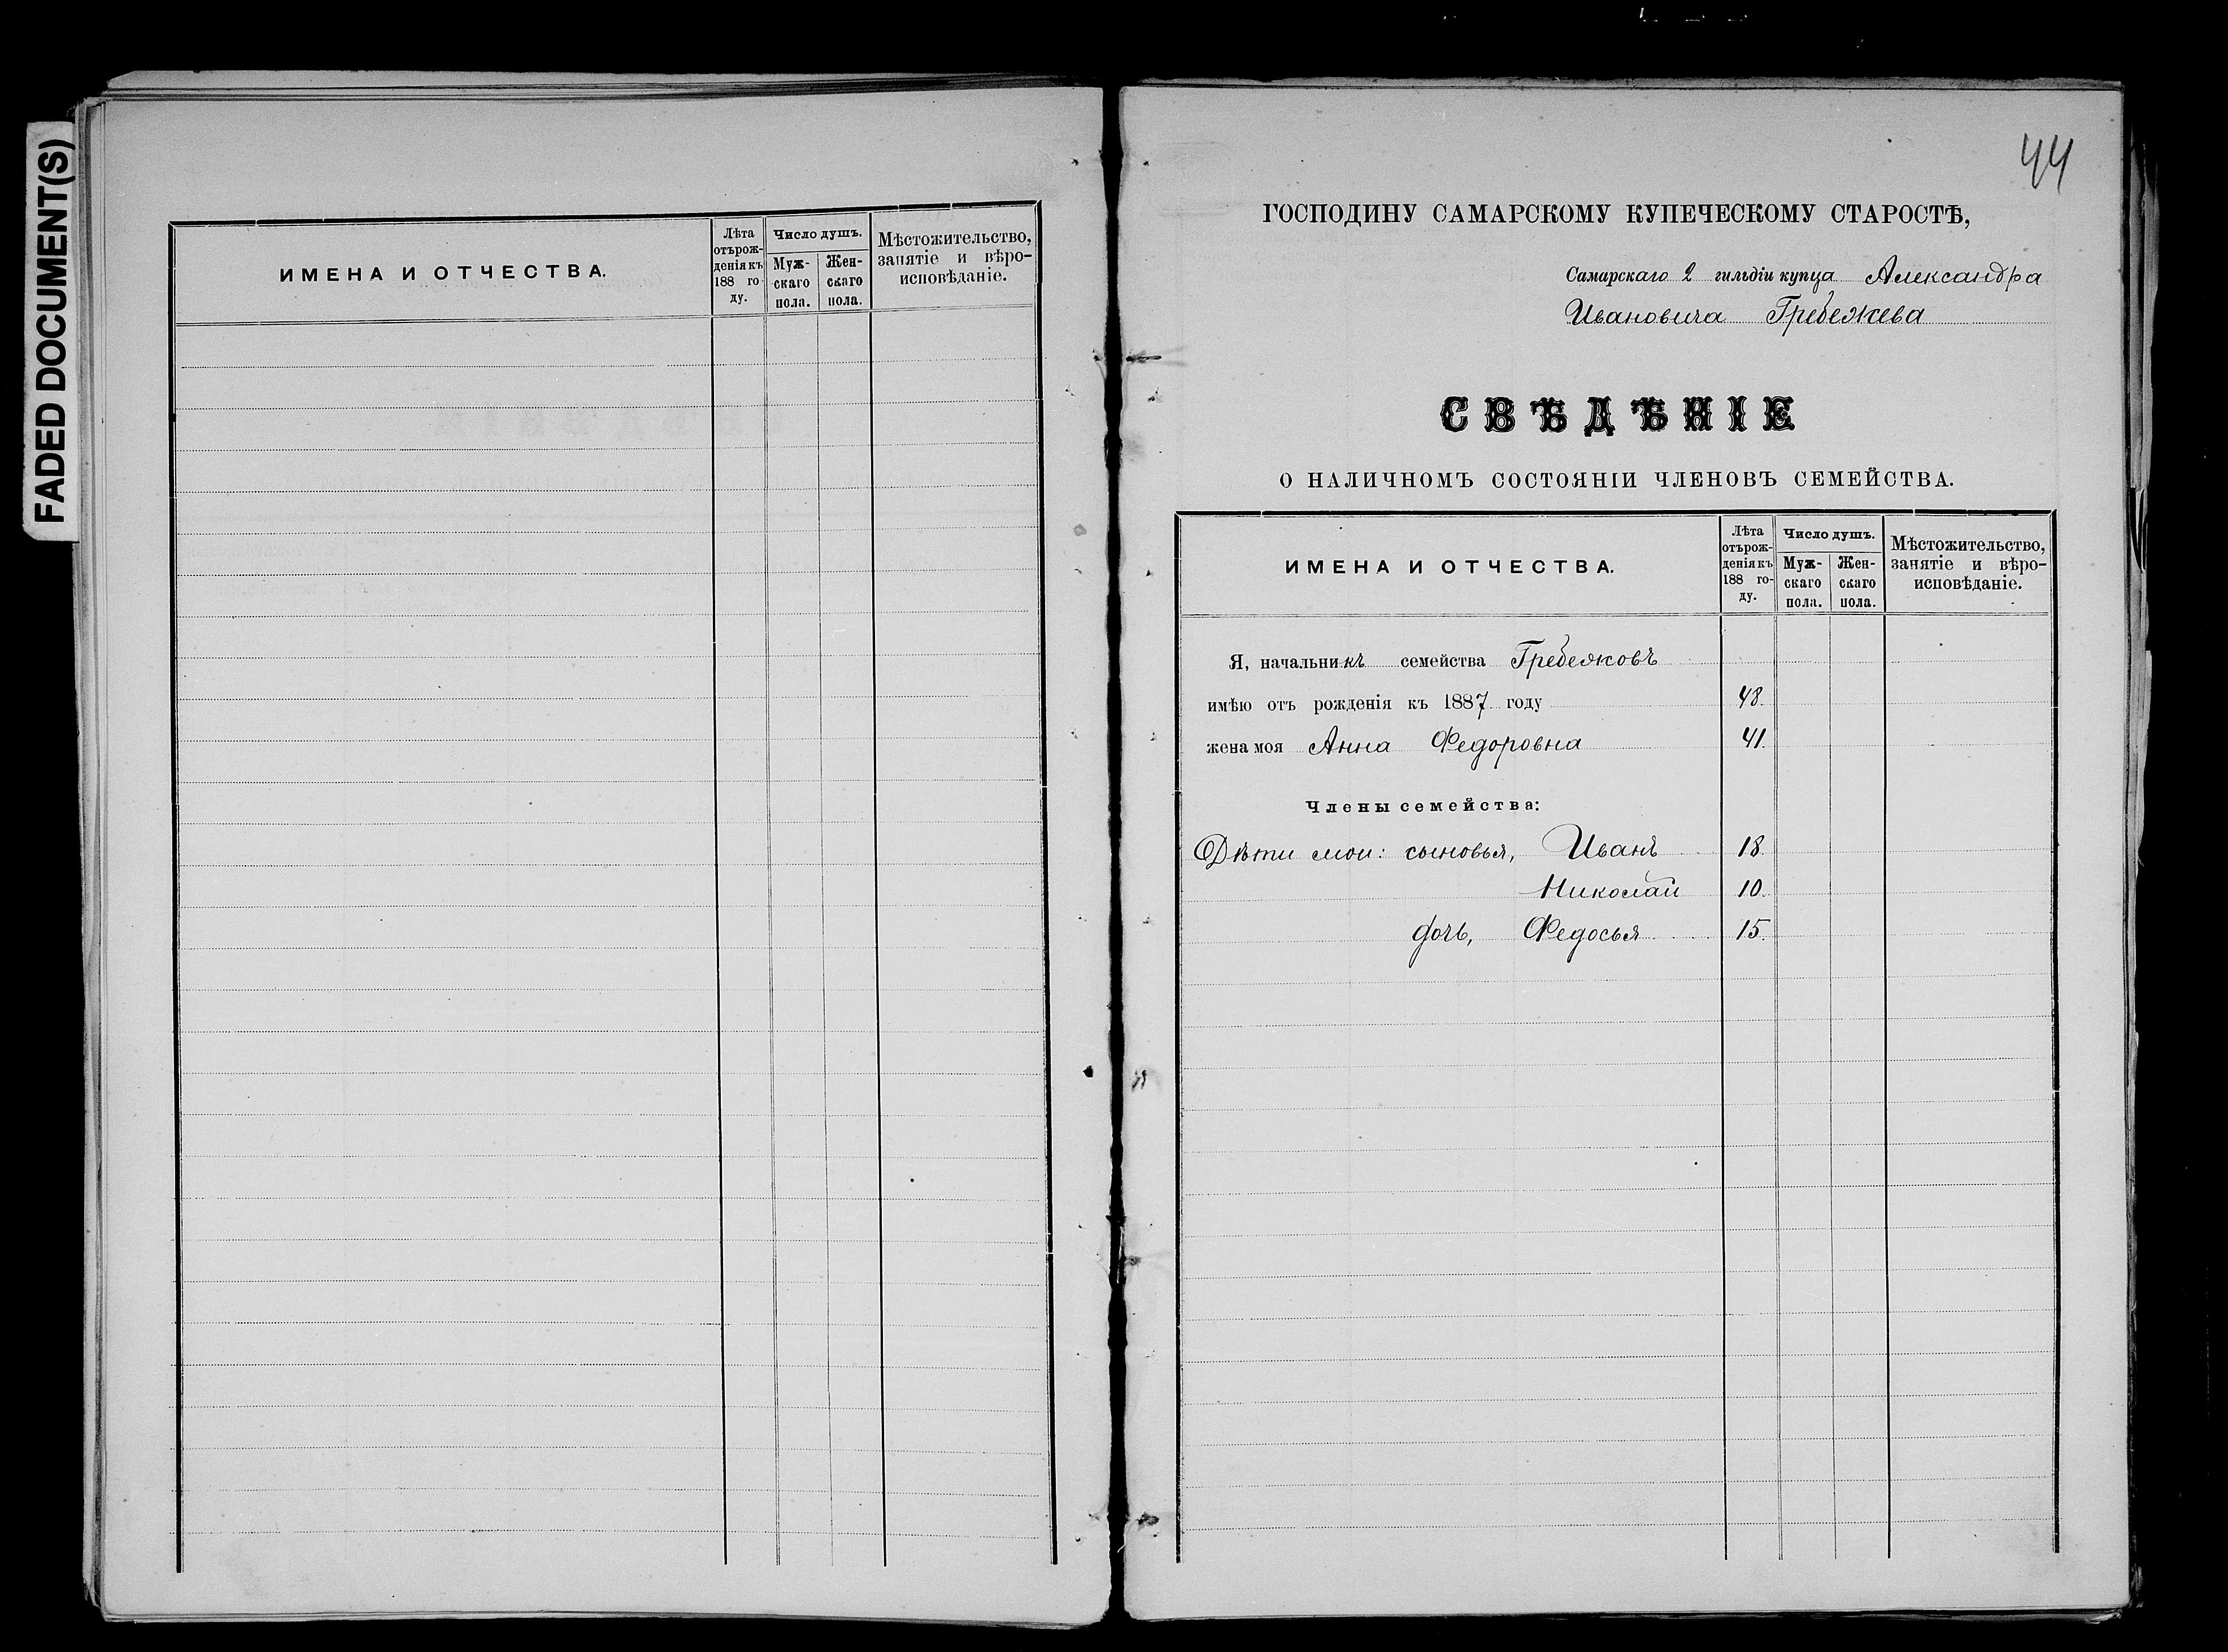 FADED DOCUMENT(S)
ИМЕНА И ОТЧЕСТВА.
Лѣта
отъ рож-
денія къ
188 го-
ду.
Число душъ.
Муж-
скаго
пола.
Жен-
скаго
пола.
Мѣстожительство,
занятіе и вѣро-
исповѣданіе.
44
ГОСПОДИНУ САМАРСКОМУ КУПЕЧЕСКОМУ СТАРОСТѢ,
Самарскаго 2 гильдіи купца Александра
Ивановича Гребежева
СВѢДѢНІЕ
О НАЛИЧНОМЪ СОСТОЯНІИ ЧЛЕНОВЪ СЕМЕЙСТВА.
ИМЕНА И ОТЧЕСТВА.
Лѣта
отъ рож-
денія къ
188 го-
ду.
Число душъ.
Муж-
скаго
пола.
Жен-
скаго
пола.
Мѣстожительство,
занятіе и вѣро-
исповѣданіе.
Я, начальникъ семейства Гребежовъ
имѣю отъ рожденія къ 1887 году 48.
жена моя Анна Федоровна 41.
Члены семейства:
Дѣти мои: сыновья, Иванъ 18.
Николай 10.
дочь, Федосья 15.